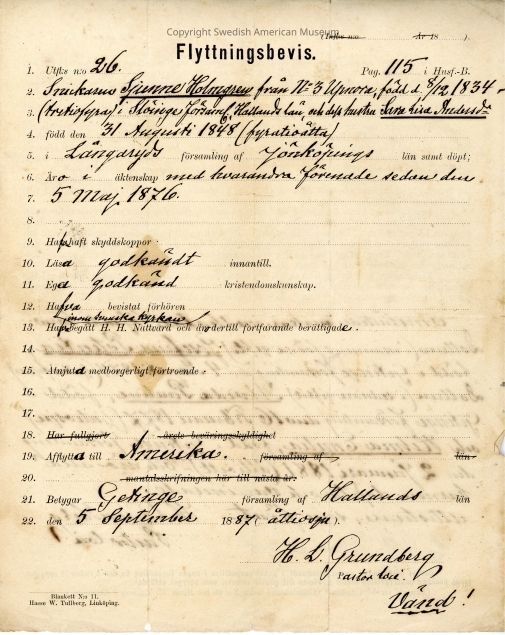 Copyright Swedish American Museum
(Infts n:o År 18 ).
Flyttningsbevis.
1. Utfts n:o 26. Pag. 115 i Husf.-B.
2. Snickaren Sjunne Holmgren från No 3 Uprore, född d. 8/12 1834
3. (trettiofyra) i Slöinge församl. Hallands län, och dess hustru Sara Lisa Andersdr
4. född den 31 Augusti 1848 (fyratioåtta)
5. i Långaryds församling af Jönköpings län samt döpt;
6. Äro i äktenskap med hvarandra förenade sedan den
7. 5 Maj 1876.
8.
9. Hafva haft skyddskoppor.
10. Läsa godkändt innantill.
11. Ega godkänd kristendomskunskap.
12. Hafva bevistat förhören
inom Svenska kyrkan
13. Hafva begått H. H. Nattvard och äro dertill fortfarande berättigade.
14.
15. Åtnjuta medborgerligt förtroende.
16.
17.
18. Har fullgjort årets beväringsskyldighet
19. Afflytta till Amerika. församling af län
20. mantalsskrifningen här till nästa år.
21. Betygar Getinge församling af Hallands län
22. den 5 September 1887 (åttiosju).
H. L. Grundberg
Pastor loci.
Vänd!
Blankett N:o 11.
Hasse W. Tullberg, Linköping.